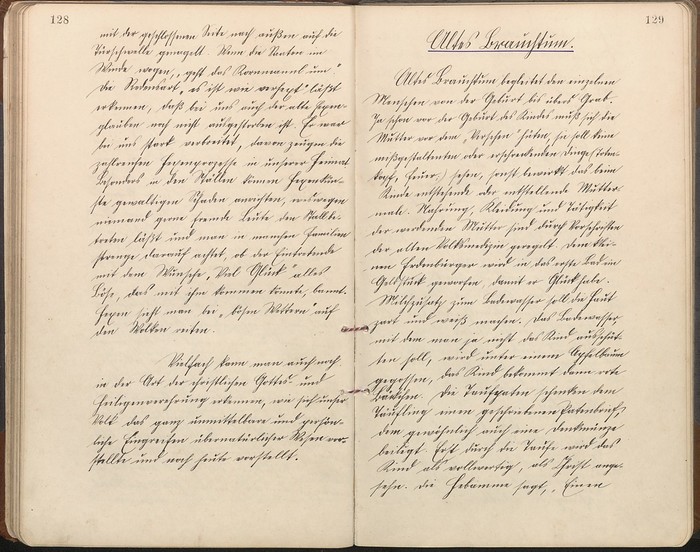 128
mit der geschlossenen Seite nach außen auf die
Türschwelle genagelt. Wenn die Saaten im
Winde wogen, „geht das Kornmannl um“
Die Redensart „es ist wie verhext“ läßt
erkennen, daß bei uns auch der alte Hexen-
glauben noch nicht ausgestorben ist. Er war
bei uns stark verbreitet, davon zeugen die
zahlreichen Hexenprozesse in unserer Heimat
Besonders in den Ställen können Hexenkün-
ste gewaltigen Schaden anrichten, weswegen
niemand gerne fremde Leute den Stall be-
treten läßt und man in manchen Familien
strenge darauf achtet, ob der Eintretende
mit dem Wunsche „Viel Glück“ alles
Böse, das mit ihm kommen könnte, bannt.
Hexen sieht man bei „bösen Wettern“ auf
den Wolken reiten.
Vielfach kann man auch noch
in der Art der christlichen Gottes- und
Heiligenverehrung erkennen, wie sich unser
Volk das ganz unmittelbare und persön-
liche Eingreifen übernatürlicher Wesen vor-
stellte und noch heute vorstellt.
129
Altes Brauchtum.
Altes Brauchtum begleitet den einzelnen
Menschen von der Geburt bis übers Grab.
Ja schon vor der Geburt des Kindes muß sich die
Mutter vor dem „Versehen“ hüten, sie soll keine
mißgestalteten oder erschreckenden Dinge (Toten-
kopf, Feuer,) sehen, sonst bewirkt das beim
Kinde entstehende oder entstellende Mutter-
male. Nahrung, Kleidung und Tätigkeit
der werdenden Mütter sind durch Vorschriften
der alten Volksmedizin geregelt. Dem klei-
nen Erdenbürger wird in das erste Bad ein
Geldstück geworfen, damit er Glück habe.
Milchzusatz zum Badewasser soll die Haut
zart und weiß machen. Das Badewasser,
mit dem man ja nicht das Kind ausschüt-
ten soll, wird unter einem Apfelbaum
gegossen, das Kind bekommt dann rote
Bäckchen. Die Taufpaten schenken dem
Täufling einen geschriebenen Patenbrief,
dem gewöhnlich auch eine Denkmünze
beiliegt. Erst durch die Taufe wird das
Kind als vollwertig, als Christ ange-
sehn. Die Hebamme sagt, „Einen